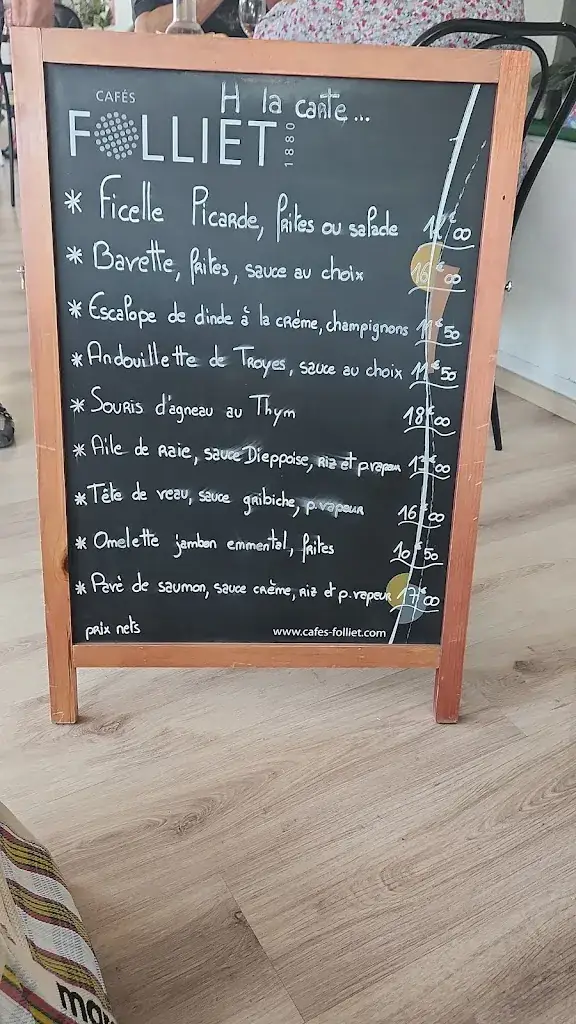 A la carte...
CAFÉS
FOLLIET 1880
* Ficelle Picarde, frites ou salade 12€00
* Bavette, frites, sauce au choix 16€00
* Escalope de dinde à la créme, champignons 11€50
* Andouillette de Troyes, sauce au choix 11€50
* Souris d'agneau au Thym 18€00
* Aile de raie, sauce Dieppoise, riz et p.vapeur €00
* Tête de veau, sauce gribiche, p.vapeur 16€00
* Omelette jambon emmental, frites 10€50
* Pavé de saumon, sauce crème, riz et p.vapeur 17€00
prix nets
www.cafes-folliet.com